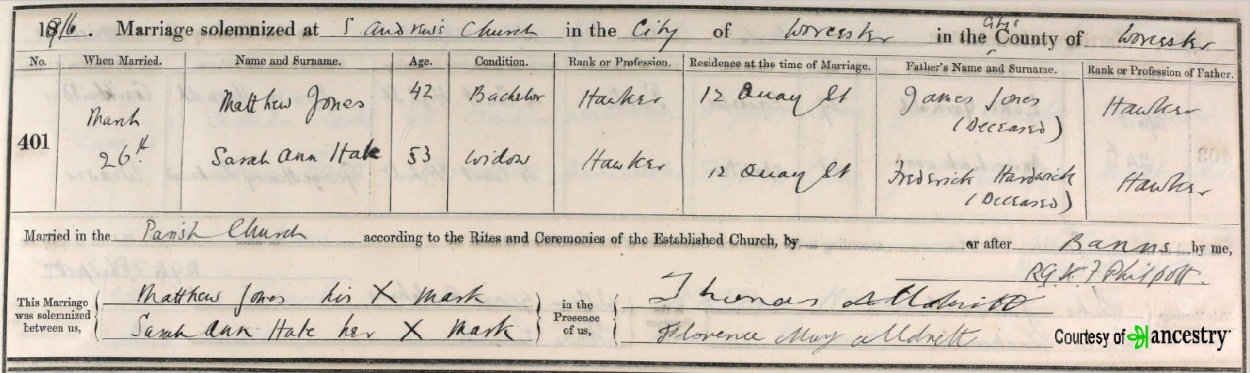 1916. Marriage solemnized at S. Andrew's Church in the City of Worcester in the City & County of Worcester
No. When Married. Name and Surname. Age. Condition. Rank or Profession. Residence at the time of Marriage. Father's Name and Surname. Rank or Profession of Father.
401 March 26th
Matthew Jones 42 Bachelor Hawker 12 Quay St James Jones (Deceased) Hawker
Sarah Ann Hake 53 Widow Hawker 12 Quay St Frederick Hardwick (Deceased) Hawker
Married in the Parish Church according to the Rites and Ceremonies of the Established Church, by or after Banns by me,
Philpott.
This Marriage was solemnized between us,
Matthew Jones his X mark
Sarah Ann Hake her X mark
in the Presence of us,
Thomas
Florence May
Courtesy of ancestry